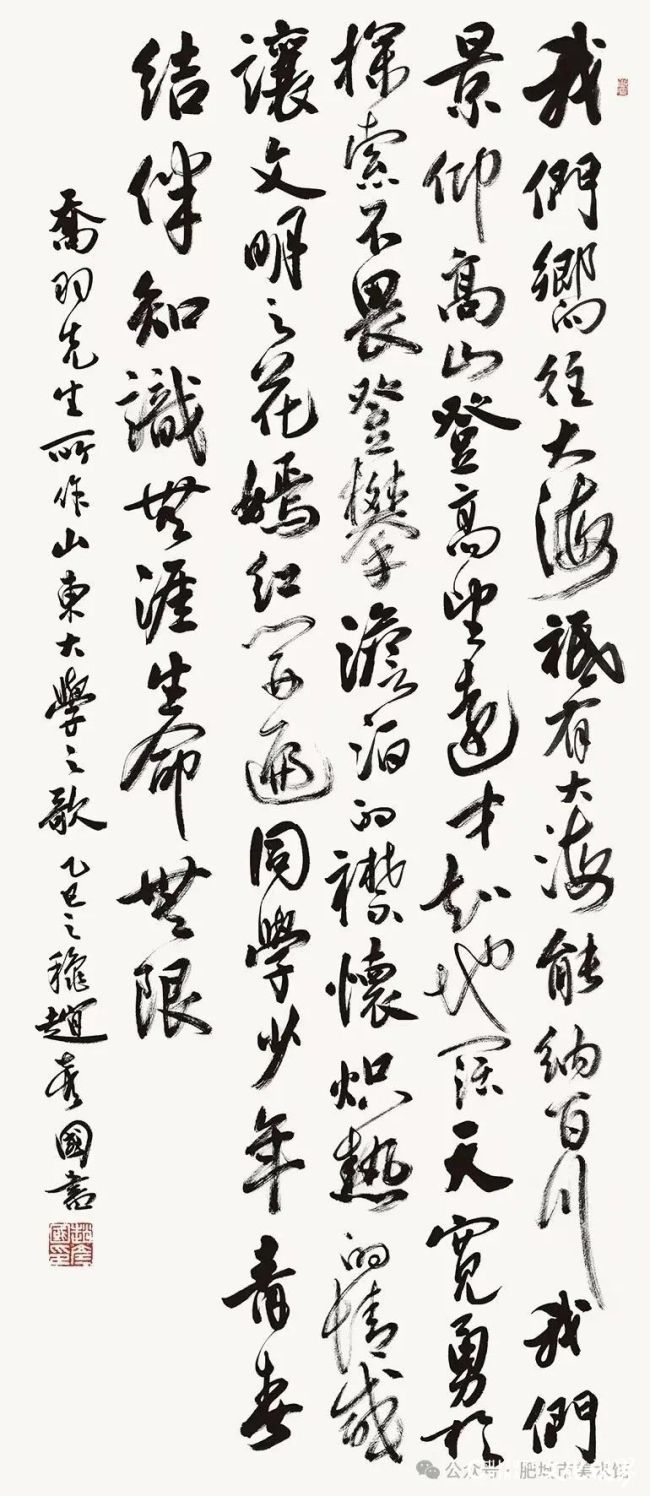 我們嚮往大海祗有大海能納百川我們
景仰高山登高望遠才知地闊天寬勇於
探索不畏登攀澹泊的襟懷炽熱的情感
讓文明之花嫣紅開遍同學少年青春
結伴知識無涯生命無限
喬羽先生所作山東大學之歌 乙巳之龝趙國書
公众号